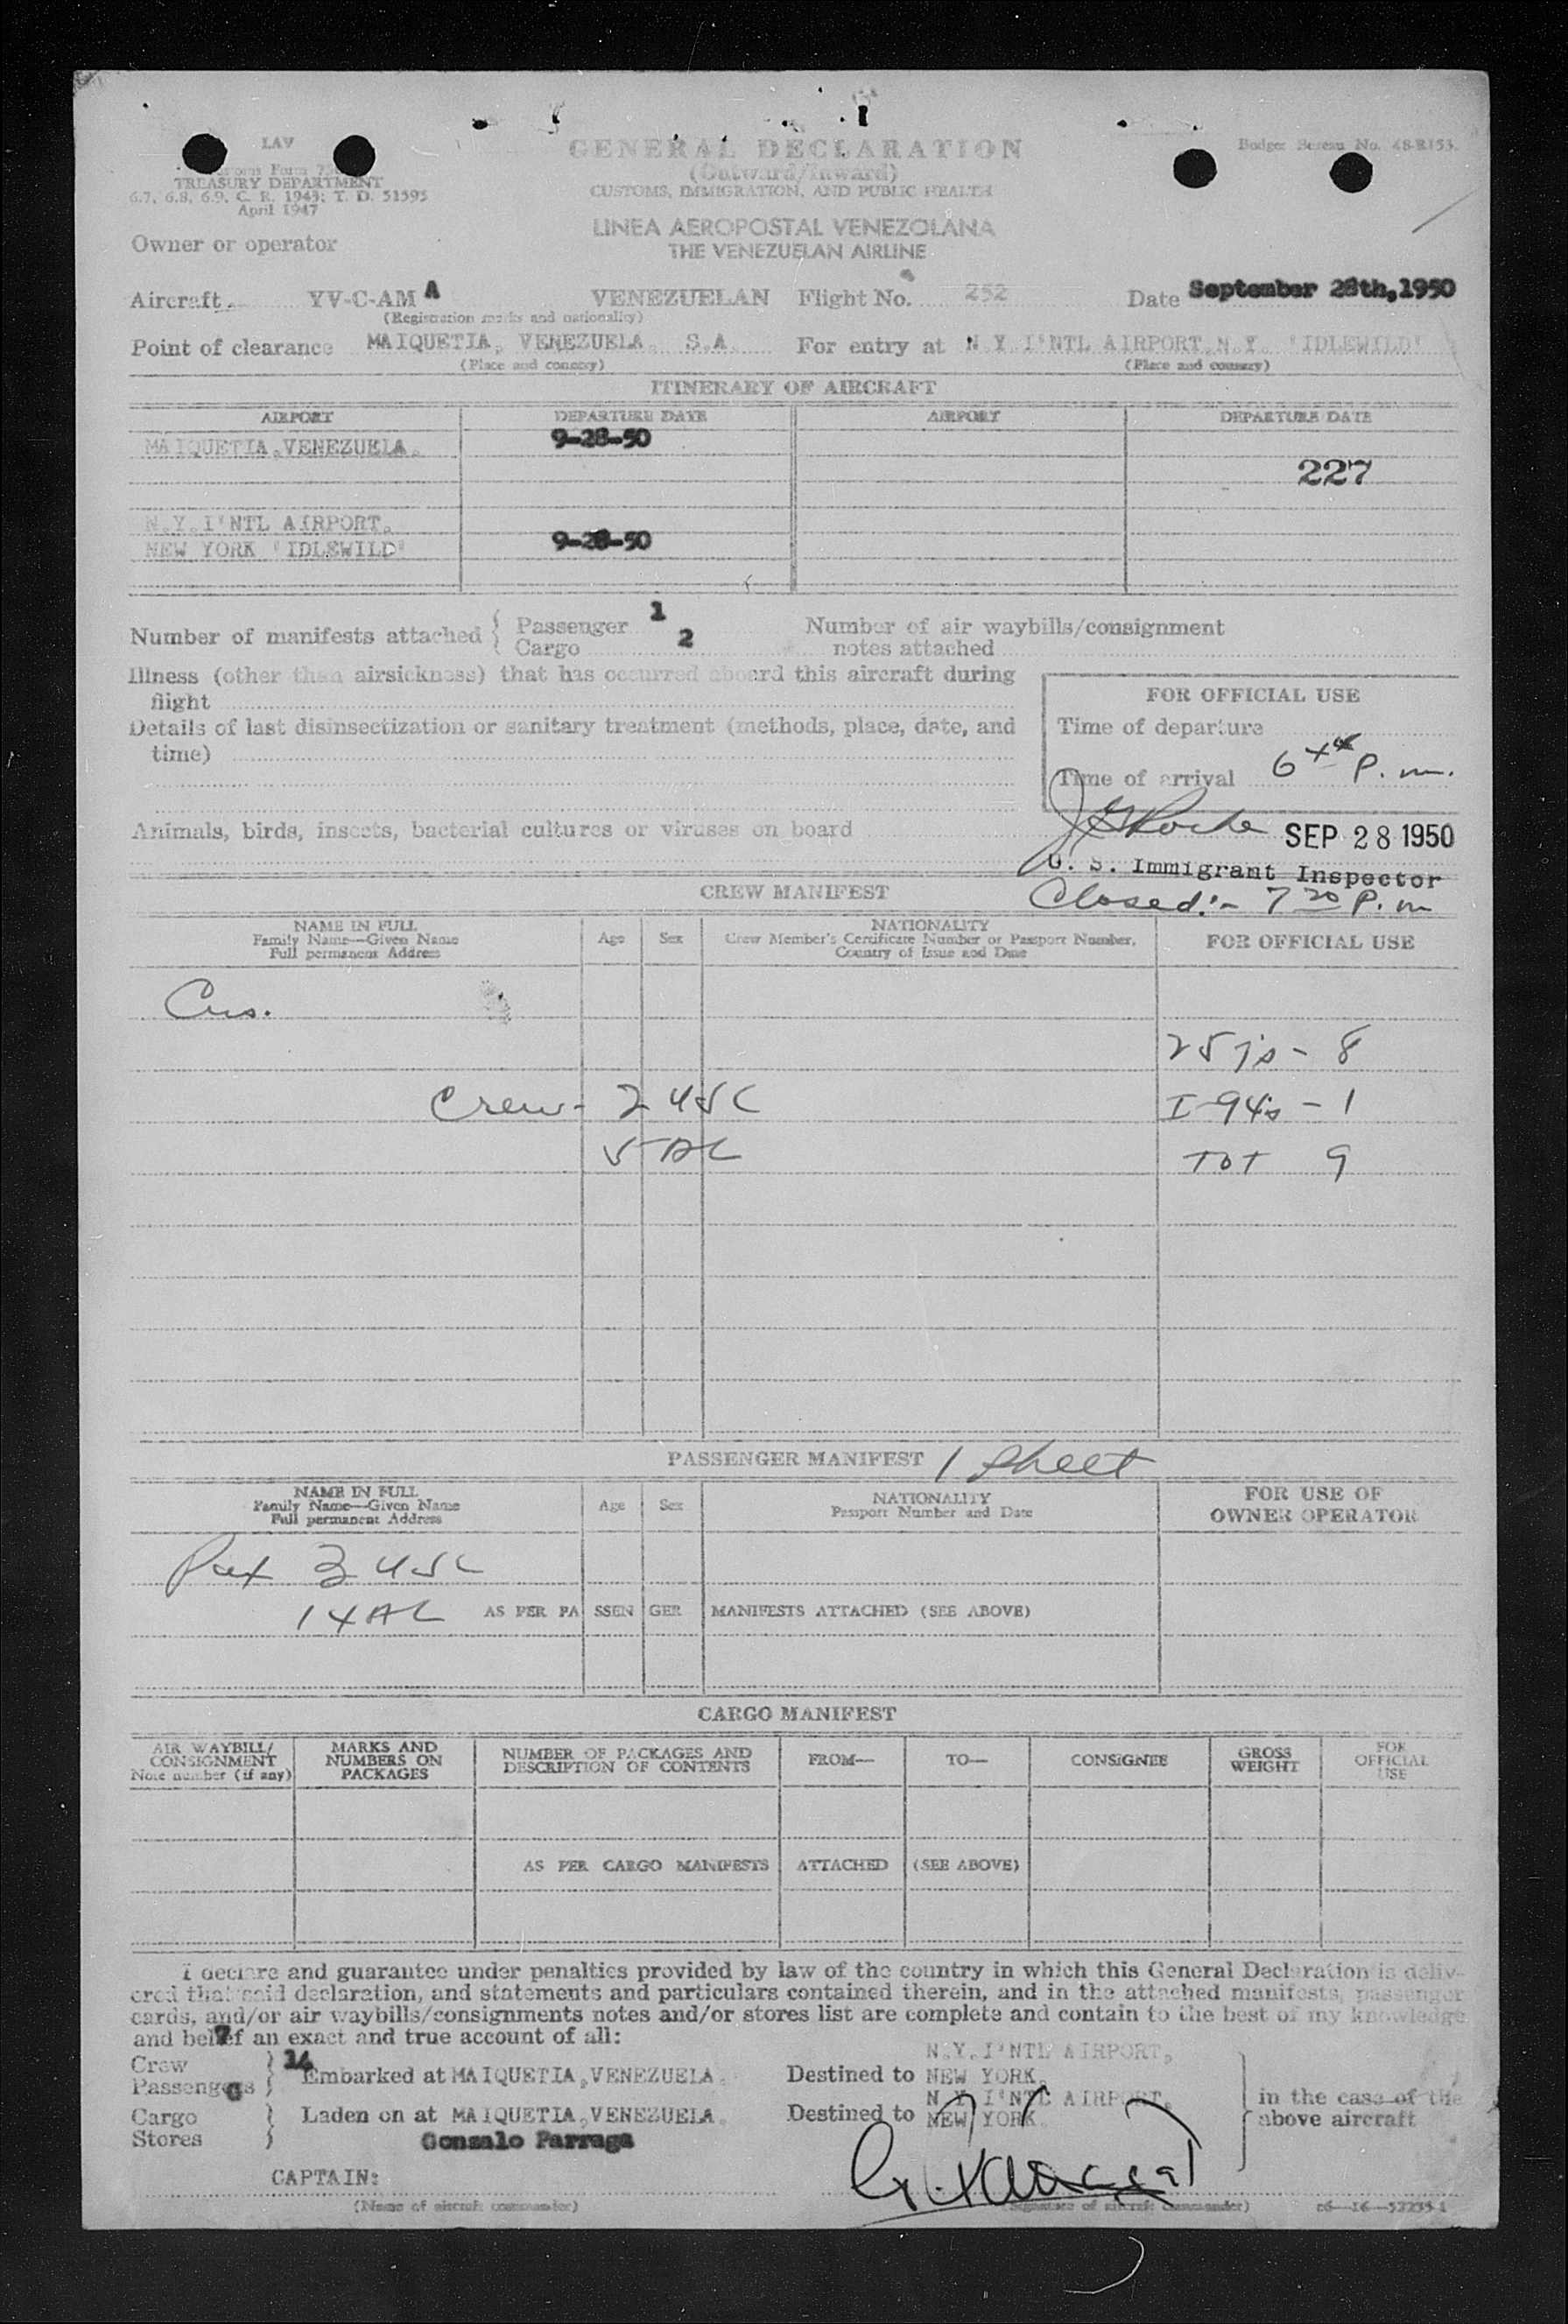 LAV
GENERAL DECLARATION
Budget Bureau No. 48-R153.
Customs Form
(Outward/Inward)
TREASURY DEPARTMENT
CUSTOMS, IMMIGRATION, AND PUBLIC HEALTH
6.7, 6.8, 6.9, C. R. 1943; T. D. 51595
April 1947
LINEA AEROPOSTAL VENEZOLANA
Owner or operator
THE VENEZUELAN AIRLINE
Aircraft YV-C-AM A VENEZUELAN Flight No. 252 Date September 28th,1950
(Registration marks and nationality)
Point of clearance MAIQUETIA, VENEZUELA, S.A. For entry at N.Y.I'NTL AIRPORT,N.Y. "IDLEWILD"
(Place and country) (Place and country)
ITINERARY OF AIRCRAFT
AIRPORT DEPARTURE DATE AIRPORT DEPARTURE DATE
MAIQUETIA,VENEZUELA. 9-28-50
227
N.Y.I'NTL AIRPORT,
NEW YORK "IDLEWILD" 9-28-50
Number of manifests attached { Passenger 1 Number of air waybills/consignment
Cargo 2 notes attached
Illness (other than airsickness) that has occurred aboard this aircraft during
flight
FOR OFFICIAL USE
Details of last disinsectization or sanitary treatment (methods, place, date, and
time)
Time of departure
Time of arrival 6 44 P.m.
Animals, birds, insects, bacterial cultures or viruses on board
SEP 28 1950
U. S. Immigrant Inspector
Closed:- 7 20 P.m
CREW MANIFEST
NAME IN FULL
Family Name—Given Name
Full permanent Address
Age Sex
NATIONALITY
Crew Member's Certificate Number or Passport Number,
Country of Issue and Date
FOR OFFICIAL USE
Cus.
257's - 8
Crew - 2 USC I-94's - 1
5 AL TOT 9
PASSENGER MANIFEST 1 sheet
NAME IN FULL
Family Name—Given Name
Full permanent Address
Age Sex
NATIONALITY
Passport Number and Date
FOR USE OF
OWNER OPERATOR
Pax 3 USC
14 AL AS PER PASSENGER MANIFESTS ATTACHED (SEE ABOVE)
CARGO MANIFEST
AIR WAYBILL/
CONSIGNMENT
Note number (if any)
MARKS AND
NUMBERS ON
PACKAGES
NUMBER OF PACKAGES AND
DESCRIPTION OF CONTENTS
FROM— TO— CONSIGNEE
GROSS
WEIGHT
FOR
OFFICIAL
USE
AS PER CARGO MANIFESTS ATTACHED (SEE ABOVE)
I declare and guarantee under penalties provided by law of the country in which this General Declaration is deliv-
ered that said declaration, and statements and particulars contained therein, and in the attached manifests, passenger
cards, and/or air waybills/consignments notes and/or stores list are complete and contain to the best of my knowledge
and belief an exact and true account of all:
7
Crew } 14 N.Y.I'NTL AIRPORT,
Passengers } Embarked at MAIQUETIA,VENEZUELA. Destined to NEW YORK.
N.Y.I'NTL AIRPORT,
Cargo } Laden on at MAIQUETIA,VENEZUELA. Destined to NEW YORK.
Stores }
in the case of the
above aircraft
Gonzalo Parraga
CAPTAIN:
(Name of aircraft commander) (Signature of aircraft commander) 16—52235-1